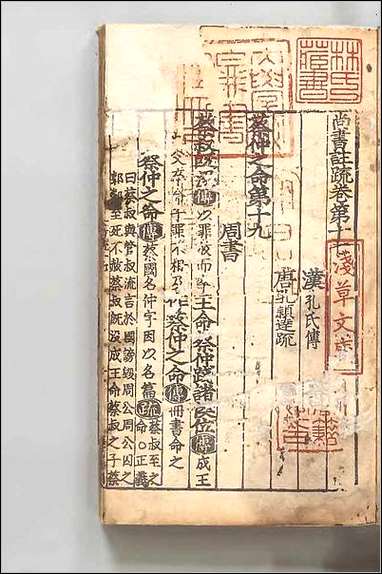 林氏藏書
淺草文庫
尚書註疏卷第十
漢孔氏傳
唐孔穎達疏
蔡仲之命第十九
周書
蔡叔既沒以罪放而卒王命蔡仲踐諸侯位傳成王
父卒命子罪不相及作蔡仲之命傳冊書命之
蔡仲之命傳蔡國名仲字因以名篇疏蔡叔至之命○正義
曰蔡叔與管叔流言於國謗毀周公周公囚之
郭鄰至死不赦蔡叔既沒成王命蔡叔之子蔡